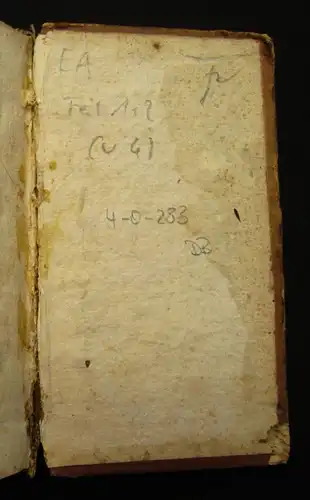 EA
Teil 1+2
(v 4)
4-0-283
DB